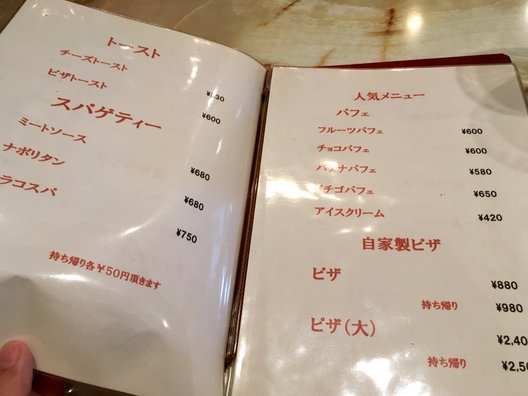 トースト
チーズトースト ¥630
ピザトースト ¥600
スパゲティー
ミートソース ¥680
ナポリタン ¥680
ラコスパ ¥750
持ち帰り各¥50円頂きます
人気メニュー
パフェ
フルーツパフェ ¥600
チョコパフェ ¥600
バナナパフェ ¥580
イチゴパフェ ¥650
アイスクリーム ¥420
自家製ピザ
ピザ ¥880
持ち帰り ¥980
ピザ(大) ¥2,40
持ち帰り ¥2,50